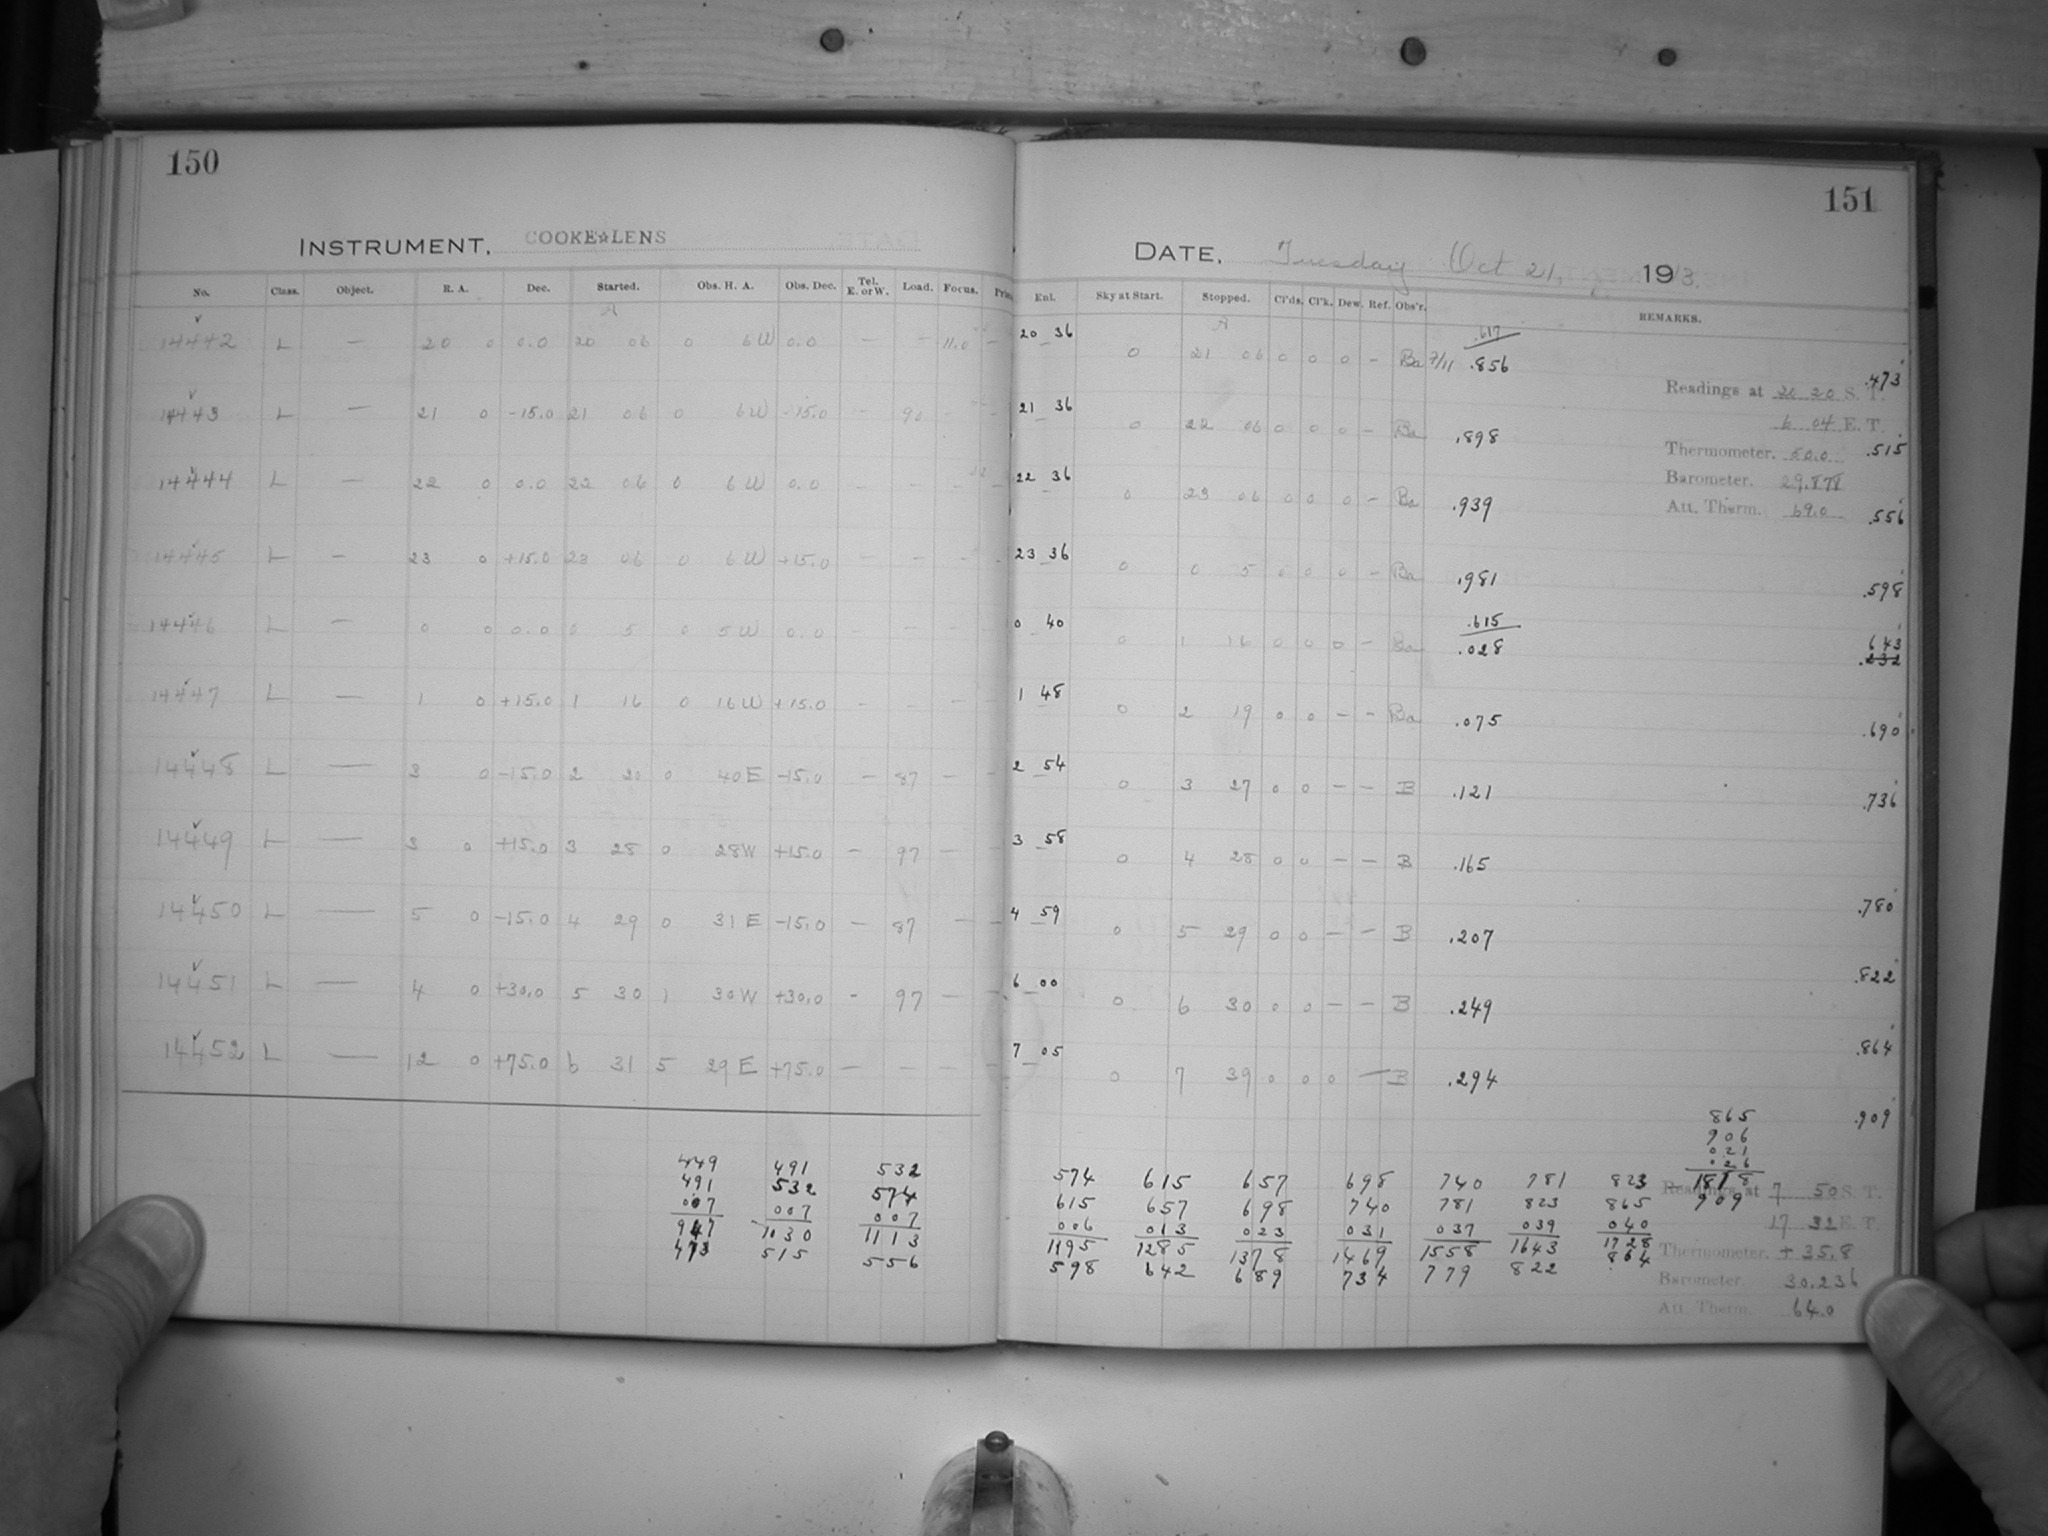 150
INSTRUMENT, COOKE☆LENS
No. Class. Object. R. A. Dec. Started. Obs. H. A. Obs. Dec. Tel. E. or W. Load. Focus.
A
14442 L — 20 0 0.0 20 06 0 6W 0.0 — — 11.0 —
14443 L — 21 0 -15.0 21 06 0 6W -15.0 -
14444 L — 22 0 0.0 22 06 0 6W 0.0 - - -
14445 L — 23 0 +15.0 23 06 0 6W +15.0 - - -
14446 L — 0 0 0.0 0 5 0 5W 0.0 - - -
14447 L — 1 0 +15.0 1 16 0 16W +15.0 - - -
14448 L — 3 0 -15.0 2 20 0 40E -15.0 - 87 - -
14449 L — 3 0 +15.0 3 28 0 28W +15.0 - 97 -
14450 L — 5 0 -15.0 4 29 0 31E -15.0 - 87 - -
14451 L — 4 0 +30.0 5 30 1 30W +30.0 - 97 - -
14452 L — 12 0 +75.0 6 31 5 29E +75.0 - - - -
449 491 532
491 532 574
007 007 007
947 1030 1113
473 515 556
151
DATE, Tuesday Oct 21, 1913.
Enl. Sky at Start. Stopped. Cl'ds. Cl'k. Dew. Ref. Obs'r. REMARKS.
A
.617
20 36 0 21 06 0 0 0 - Ba 7/11 .856 .473
Readings at 20 20 S. T.
6 04 E. T.
21 36 0 22 06 0 0 0 - Ba .898 .515
Thermometer. 50.0
Barometer. 29.878
Att. Therm. 69.0
22 36 0 23 06 0 0 0 - Ba .939 .556
23 36 0 0 5 0 0 0 - Ba .981 .598
.615
0 40 0 1 16 0 0 0 - Ba .028 643
.232
1 48 0 2 19 0 0 - - Ba .075 .690
2 54 0 3 27 0 0 - - B .121 .736
3 58 0 4 28 0 0 - - B .165 .780
4 59 0 5 29 0 0 - - B .207 .822
6 00 0 6 30 0 0 - - B .249 .864
7 05 0 7 39 0 0 0 - B .294 .909
865
906
021
026
1818
909
574 615 657 698 740 781 823
615 657 698 740 781 823 865
006 013 023 031 037 039 040
1195 1285 1378 1469 1558 1643 1728
598 642 689 734 779 822 864
Readings at 7 50 S. T.
17 32 E. T.
Thermometer. +35.8
Barometer. 30.236
Att. Therm. 64.0